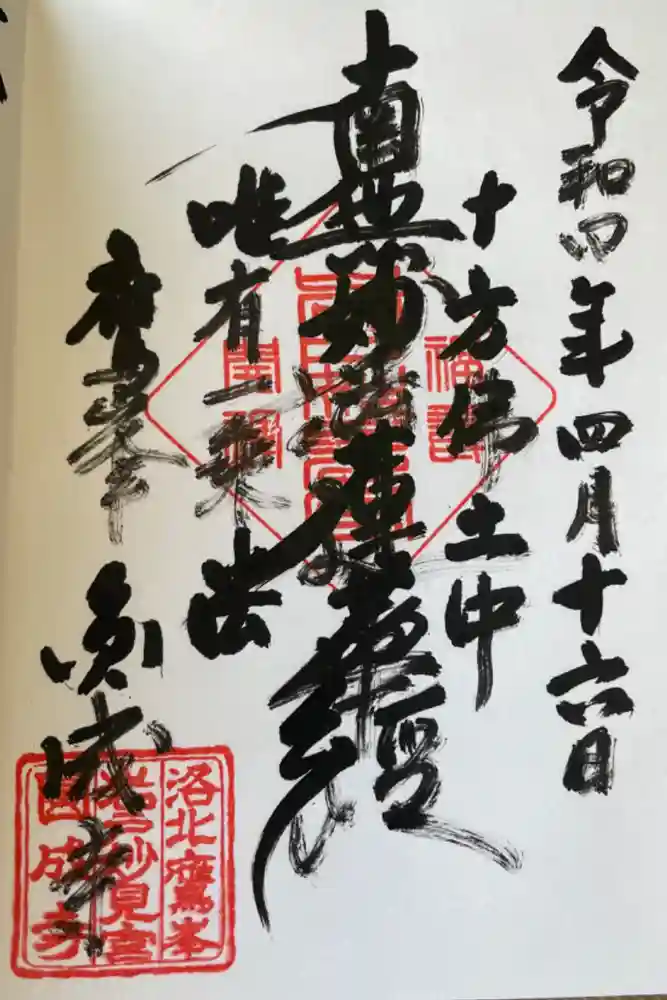 令和四年四月十六日
十方佛土中
南無妙法蓮華經
唯有一乗法
鷹峯
圓成寺
洛北鷹峯
岩戸妙見宮
圓成寺